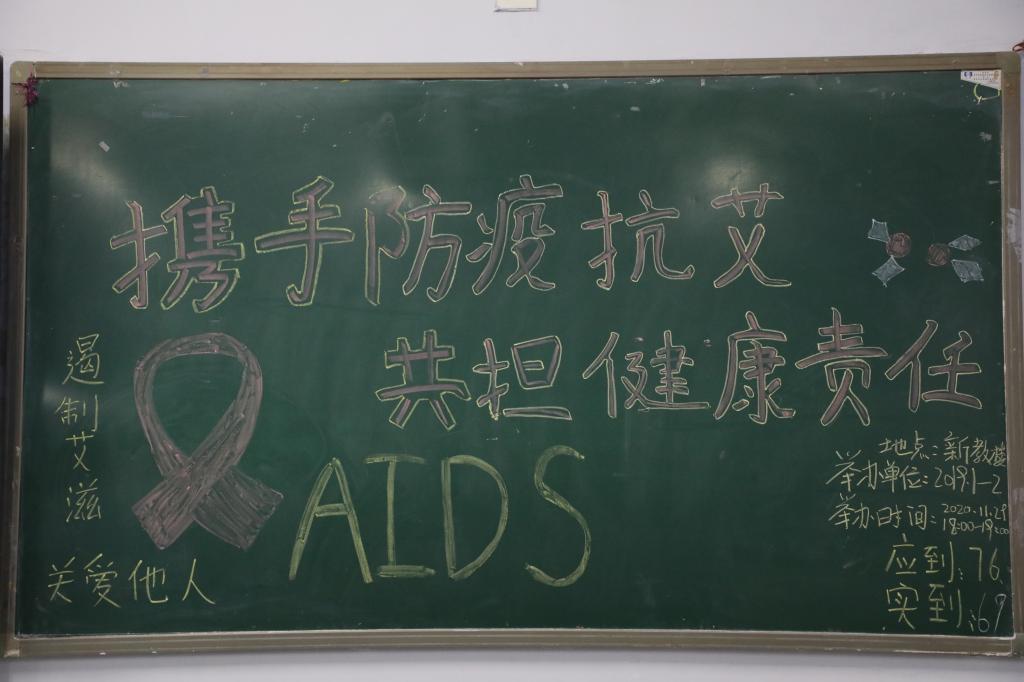 携手防疫抗艾
共担健康责任
遏制艾滋
关爱他人
AIDS
地点:新教楼
举办单位:2019.1-2
举办时间:2020.11.29
18:00-19:00
应到:76
实到:69